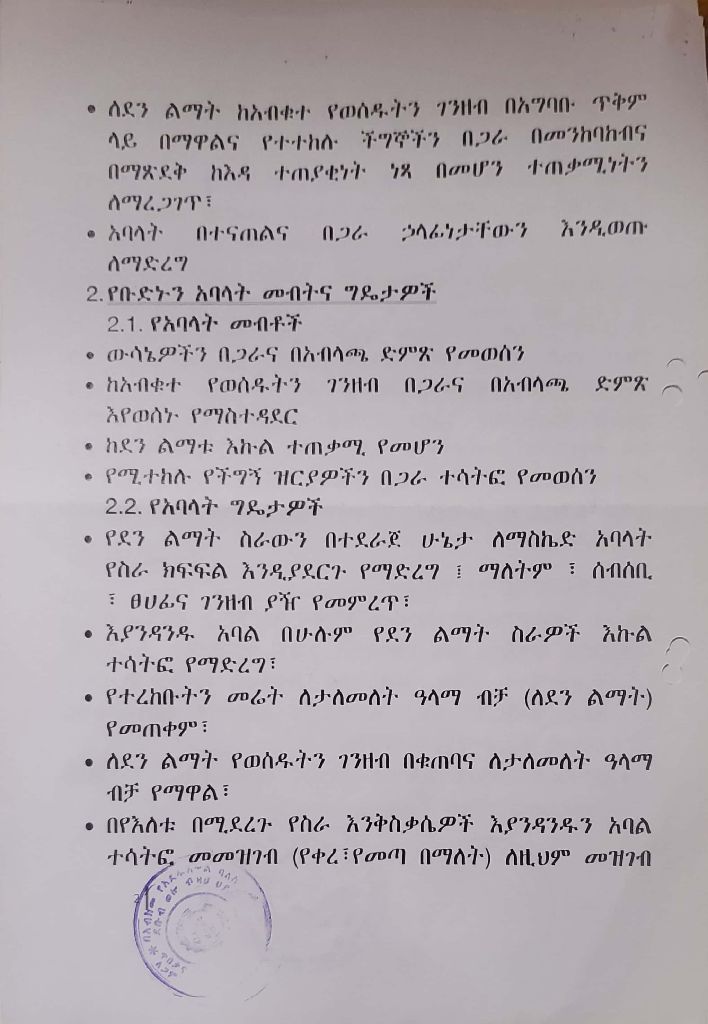 • ለደን ልማት ከአብቁተ የወሰዱትን ገንዘብ በአግባቡ ጥቅም
ላይ በማዋልና የተተከሉ ችግኞችን በጋራ በመንከባከብና
በማጽደቅ ከእዳ ተጠያቂነት ነጻ በመሆን ተጠቃሚነትን
ለማረጋገጥ፣
• አባላት በተናጠልና በጋራ ኃላፊነታቸውን እንዲወጡ
ለማድረግ
2. የቡድኑን አባላት መብትና ግዴታዎች
2.1. የአባላት መብቶች
• ውሳኔዎችን በጋራና በአብላጫ ድምጽ የመወሰን
• ከአብቁተ የወሰዱትን ገንዘብ በጋራና በአብላጫ ድምጽ
እየወሰኑ የማስተዳደር
• ከደን ልማቱ እኩል ተጠቃሚ የመሆን
• የሚተከሉ የችግኝ ዝርያዎችን በጋራ ተሳትፎ የመወሰን
2.2. የአባላት ግዴታዎች
• የደን ልማት ስራውን በተደራጀ ሁኔታ ለማስኬድ አባላት
የስራ ክፍፍል እንዲያደርጉ የማድረግ ፤ ማለትም ፣ ሰብሰቢ
፣ ፀሀፊና ገንዘብ ያዥ የመምረጥ፣
• እያንዳንዱ አባል በሁሉም የደን ልማት ስራዎች እኩል
ተሳትፎ የማድረግ፣
• የተረከቡትን መሬት ለታለመለት ዓላማ ብቻ (ለደን ልማት)
የመጠቀም፣
• ለደን ልማት የወሰዱትን ገንዘብ በቁጠባና ለታለመለት ዓላማ
ብቻ የማዋል፣
• በየእለቱ በሚደረጉ የስራ እንቅስቃሴዎች እያንዳንዱን አባል
ተሳትፎ መመዝገብ (የቀረ፣የመጣ በማለት) ለዚህም መዝገብ